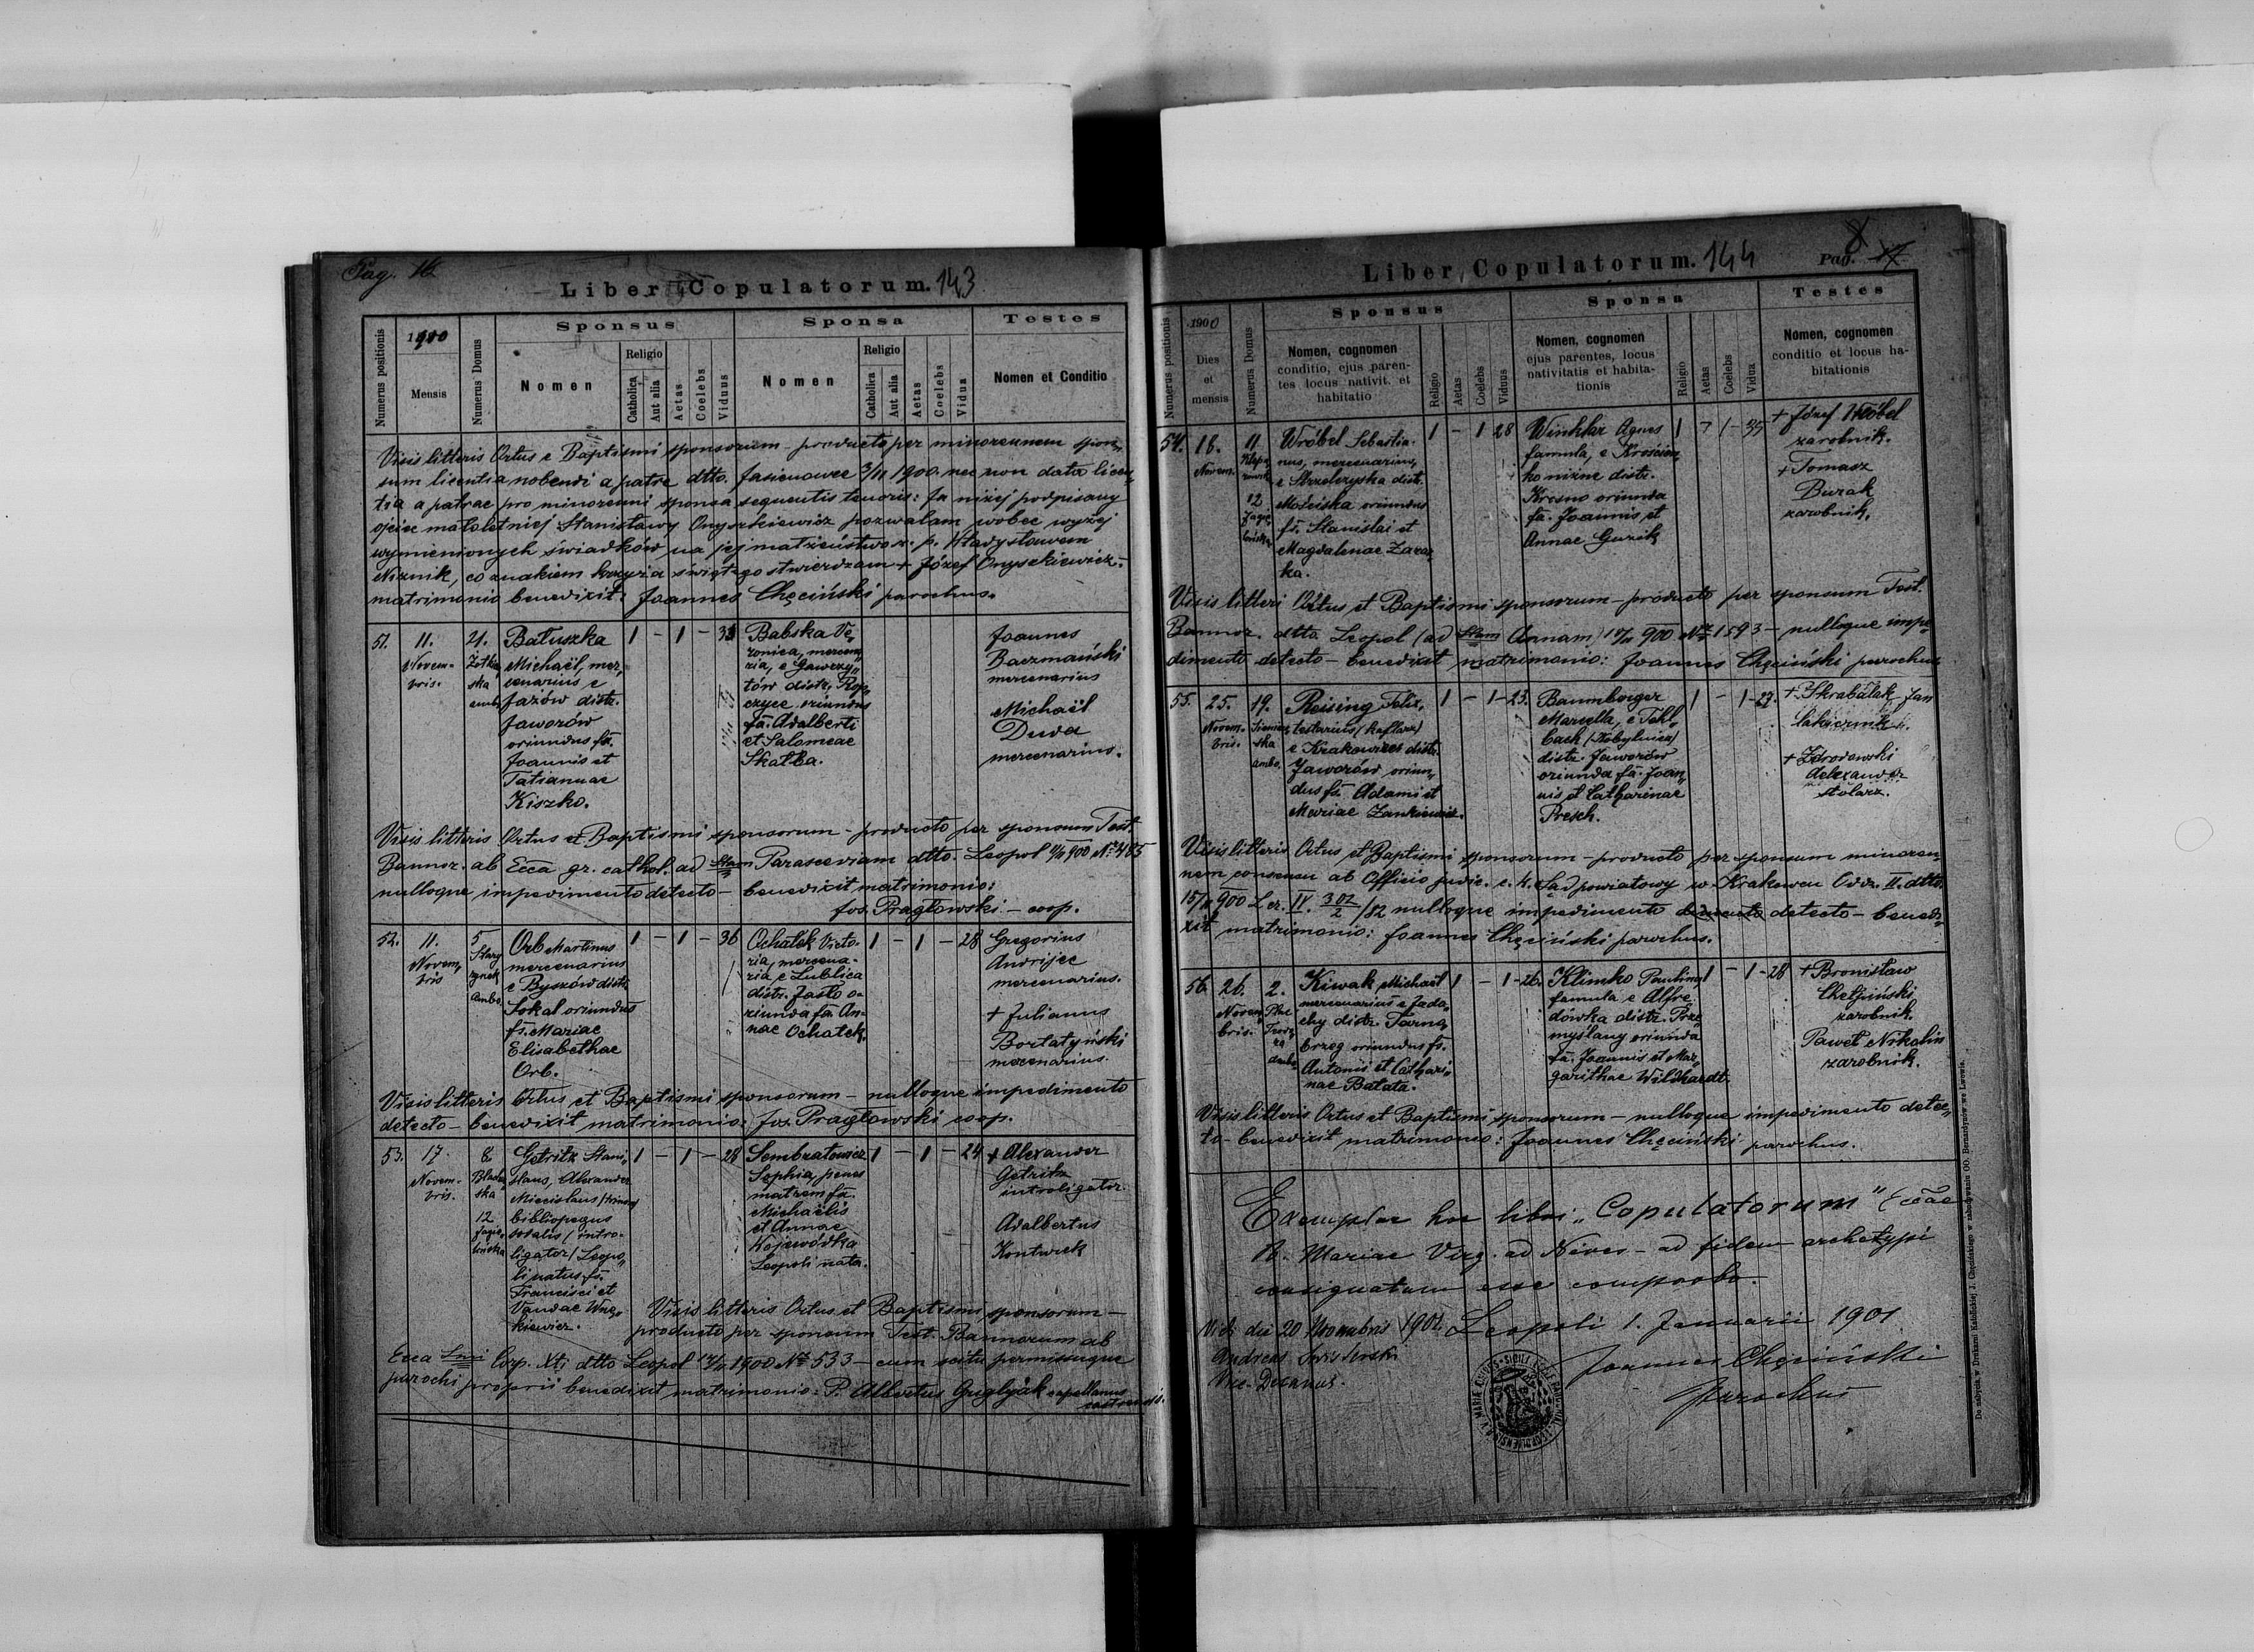 Pag. 16
Liber Copulatorum. 143
Numerus positionis
1900
Mensis
Numerus Domus
Sponsus
Nomen
Religio
Catholica
Aut alia
Aetas
Coelebs
Viduus
Sponsa
Nomen
Religio
Catholica
Aut alia
Aetas
Coelebs
Vidua
Testes
Nomen et Conditio
Visis litteris Ortus e Baptismi sponsorum - producta per minorennem spon„
sum licentia nobendi a patre dtto. Jasienowce 3/11 1900. nec non data licen„
tia a patrae pro minorenni sponsa sequentis tenoris: Ja niżej podpisany
ojciec małoletniej Stanisławy Onyszkiewicz pozwalam wobec wyżej
wymienionych świadków na jej małżeństwo z p. Władysławem
Niznik, co znakiem krzyża świętego stwierdzam + Józef Onyszkiewicz. -
matrimonio benedixit: Joannes Chęciński parochus.
51.
11.
Novem-
bris.
21.
Żółkie„
ska
amb.
Batuszka
Michaël, mer„
cenarius e
Jazów distr.
Jaworów
oriundus fs.
Joannis et
Tatiannae
Kiszko.
1 - 1 -
Babska Ve„
ronica, mercena„
ria, e Gawrzy„
łów distr. Rop„
czyce oriunda
fa. Adalberti
et Salomeae
Skałba.
Joannes
Baczmański
mercenarius
Michaël
Duda
mercenarius.
Visis litteris Ortus et Baptismi sponsorum - producto per sponsum Test.
Bannor. ab Ecca gr. cathol. ad Stam Parasceviam dtto. Leopol 11/11 900 No 485
nulloque impedimento detecto - benedixit matrimonio:
Jos. Pragłowski - coop.
52.
11.
Novem„
bris
5
Stary
rynek
Ambo.
Orb Martinus
mercenarius
e Byszów distr.
Sokal oriundus
fs. Mariae
Elisabethae
Orb.
1 - 1 - 36
Ochatek Victo-
ria, mercena-
ria e Lublica
distr. Jasło o-
riunda fa. An-
nae Ochatek.
1 - 1 - 28
Gregorius
Andrijec
mercenarius.
+ Julianus
Bortatyński
mercenarius.
Visis litteris Ortus et Baptismi sponsorum - nulloque impedimento
detecto - benedixit matrimonio: Jos. Pragłowski coop.
53.
17.
Novem-
bris.
8
ska
12
Jagie„
lońska
Getritz Stani„
slaus, Alexander
Miecislaus
bibliopegus
sodalis (intro-
ligator) Leopo„
li natus fs.
Francisci et
Vandae Wnę„
kiewicz.
1 - 1 - 28
Sembratowicz
Sophia, penes
matrem fa.
Michaëlis
et Annae
Wojewódka
Leopoli nata.
1 - 1 - 24
+ Alexander
Getritz
introligator.
Adalbertus
Visis litteris Ortus et Baptismi sponsorum -
producto per sponsum Test. Bannorum ab
Ecca Smi Corp. Xti dtto Leopol 17/11 1900 No 533 - cum scitu permissuque
parochi proprii benedixit matrimonio: P. Albertus capellanus
castrensis.
Liber Copulatorum. 144
Pag. 17
8
Numerus positionis
1900
Dies
et
mensis
Numerus Domus
Sponsus
Nomen, cognomen
conditio, ejus paren-
tes locus nativit. et
habitatio
Religio
Aetas
Coelebs
Viduus
Sponsa
Nomen, cognomen
ejus parentes, locus
nativitatis et habita-
tionis
Religio
Aetas
Coelebs
Vidua
Testes
Nomen, cognomen
conditio et locus ha-
bitationis
54.
18.
Novem.
11
12
Wróbel Sebastia-
nus, mercenarius,
e Strzelczyska distr.
Mościska oriundus
fs. Stanislai et
Magdalenae Zara„
ka.
1 - 1 28
Winklar Agnes
famula, e Krościen„
ko niżne distr.
Krosno oriunda
fa. Joannis et
Annae Guzik
1 - 1 - 35
+ Józef Wróbel
zarobnik.
+ Tomasz
Burak
zarobnik.
Visis litteri Ortus et Baptismi sponsorum - producto per sponsum Test.
Bannor. dtto Leopol (ad Stam Annam) 18/11 900 No 1593 - nulloque impe„
dimento detecto - benedixit matrimonio: Joannes Chęciński parochus
55.
25.
Novem-
bris.
19.
Sieniaw„
ska
ambo.
Reising Felix,
testarius (kaflarz)
e Krakowiec distr.
Jaworów oriun„
dus fs. Adami et
Mariae Zankiewicz.
1 - 1 - 23.
Baumberger
Marcella, e Fehl„
bach (Kobylnica)
distr. Jaworów
oriunda fa. Joan„
nis et Catharinae
Presch.
1 - 1 - 27.
+ Skrabalak Jan
lakiernik.
+ Zdrodowski
Aelxander
stolarz.
Visis litteris Ortus et Baptismi sponsorum - producto per sponsum minoren„
nem consensu ab Officio judic. c. k. Sąd powiatowy w Krakowcu Odd. II. dtto
15/11 900 L cz. IV. 302/2 /82 nulloque impedimento detecto - benedi„
xit matrimonio: Joannes Chęciński parochus.
56.
26.
Novem„
bris.
2.
Plac
Teodo„
ra
ambo
Kiwak Michaël
mercenarius e Jada„
chy distr. Tarno„
brzeg oriundus fs.
Antonii et Cathari„
nae Batata.
1 - 1 - 26.
Klimko Paulina
famula e Alfre„
dówka distr. Prze„
myślany oriunda
fa. Joannis et Mar„
garithae Wildhardt.
1 - 1 - 28
+ Bronisław
Chełpiński
zarobnik.
Paweł Nikolin
zarobnik.
Visis litteris Ortus et Baptismi sponsorum - nulloque impedimento detec„
to - benedixit matrimonio: Joannes Chęciński parochus.
Exemplar hoc libri „Copulatorum" Eccae
B. Mariae Virg. ad Nives - ad fidem archetypi
consignatum esse comprobo.
Leopoli 1. Januarii 1901
Joannes Chęciński
Parochus
Vidi die 20 Novembris 1901
Andreas
Vice-Decanus.
Do nabycia w Drukarni Katolickiej J. Chęcińskiego w zabudowaniu OO. Bernardynów we Lwowie.